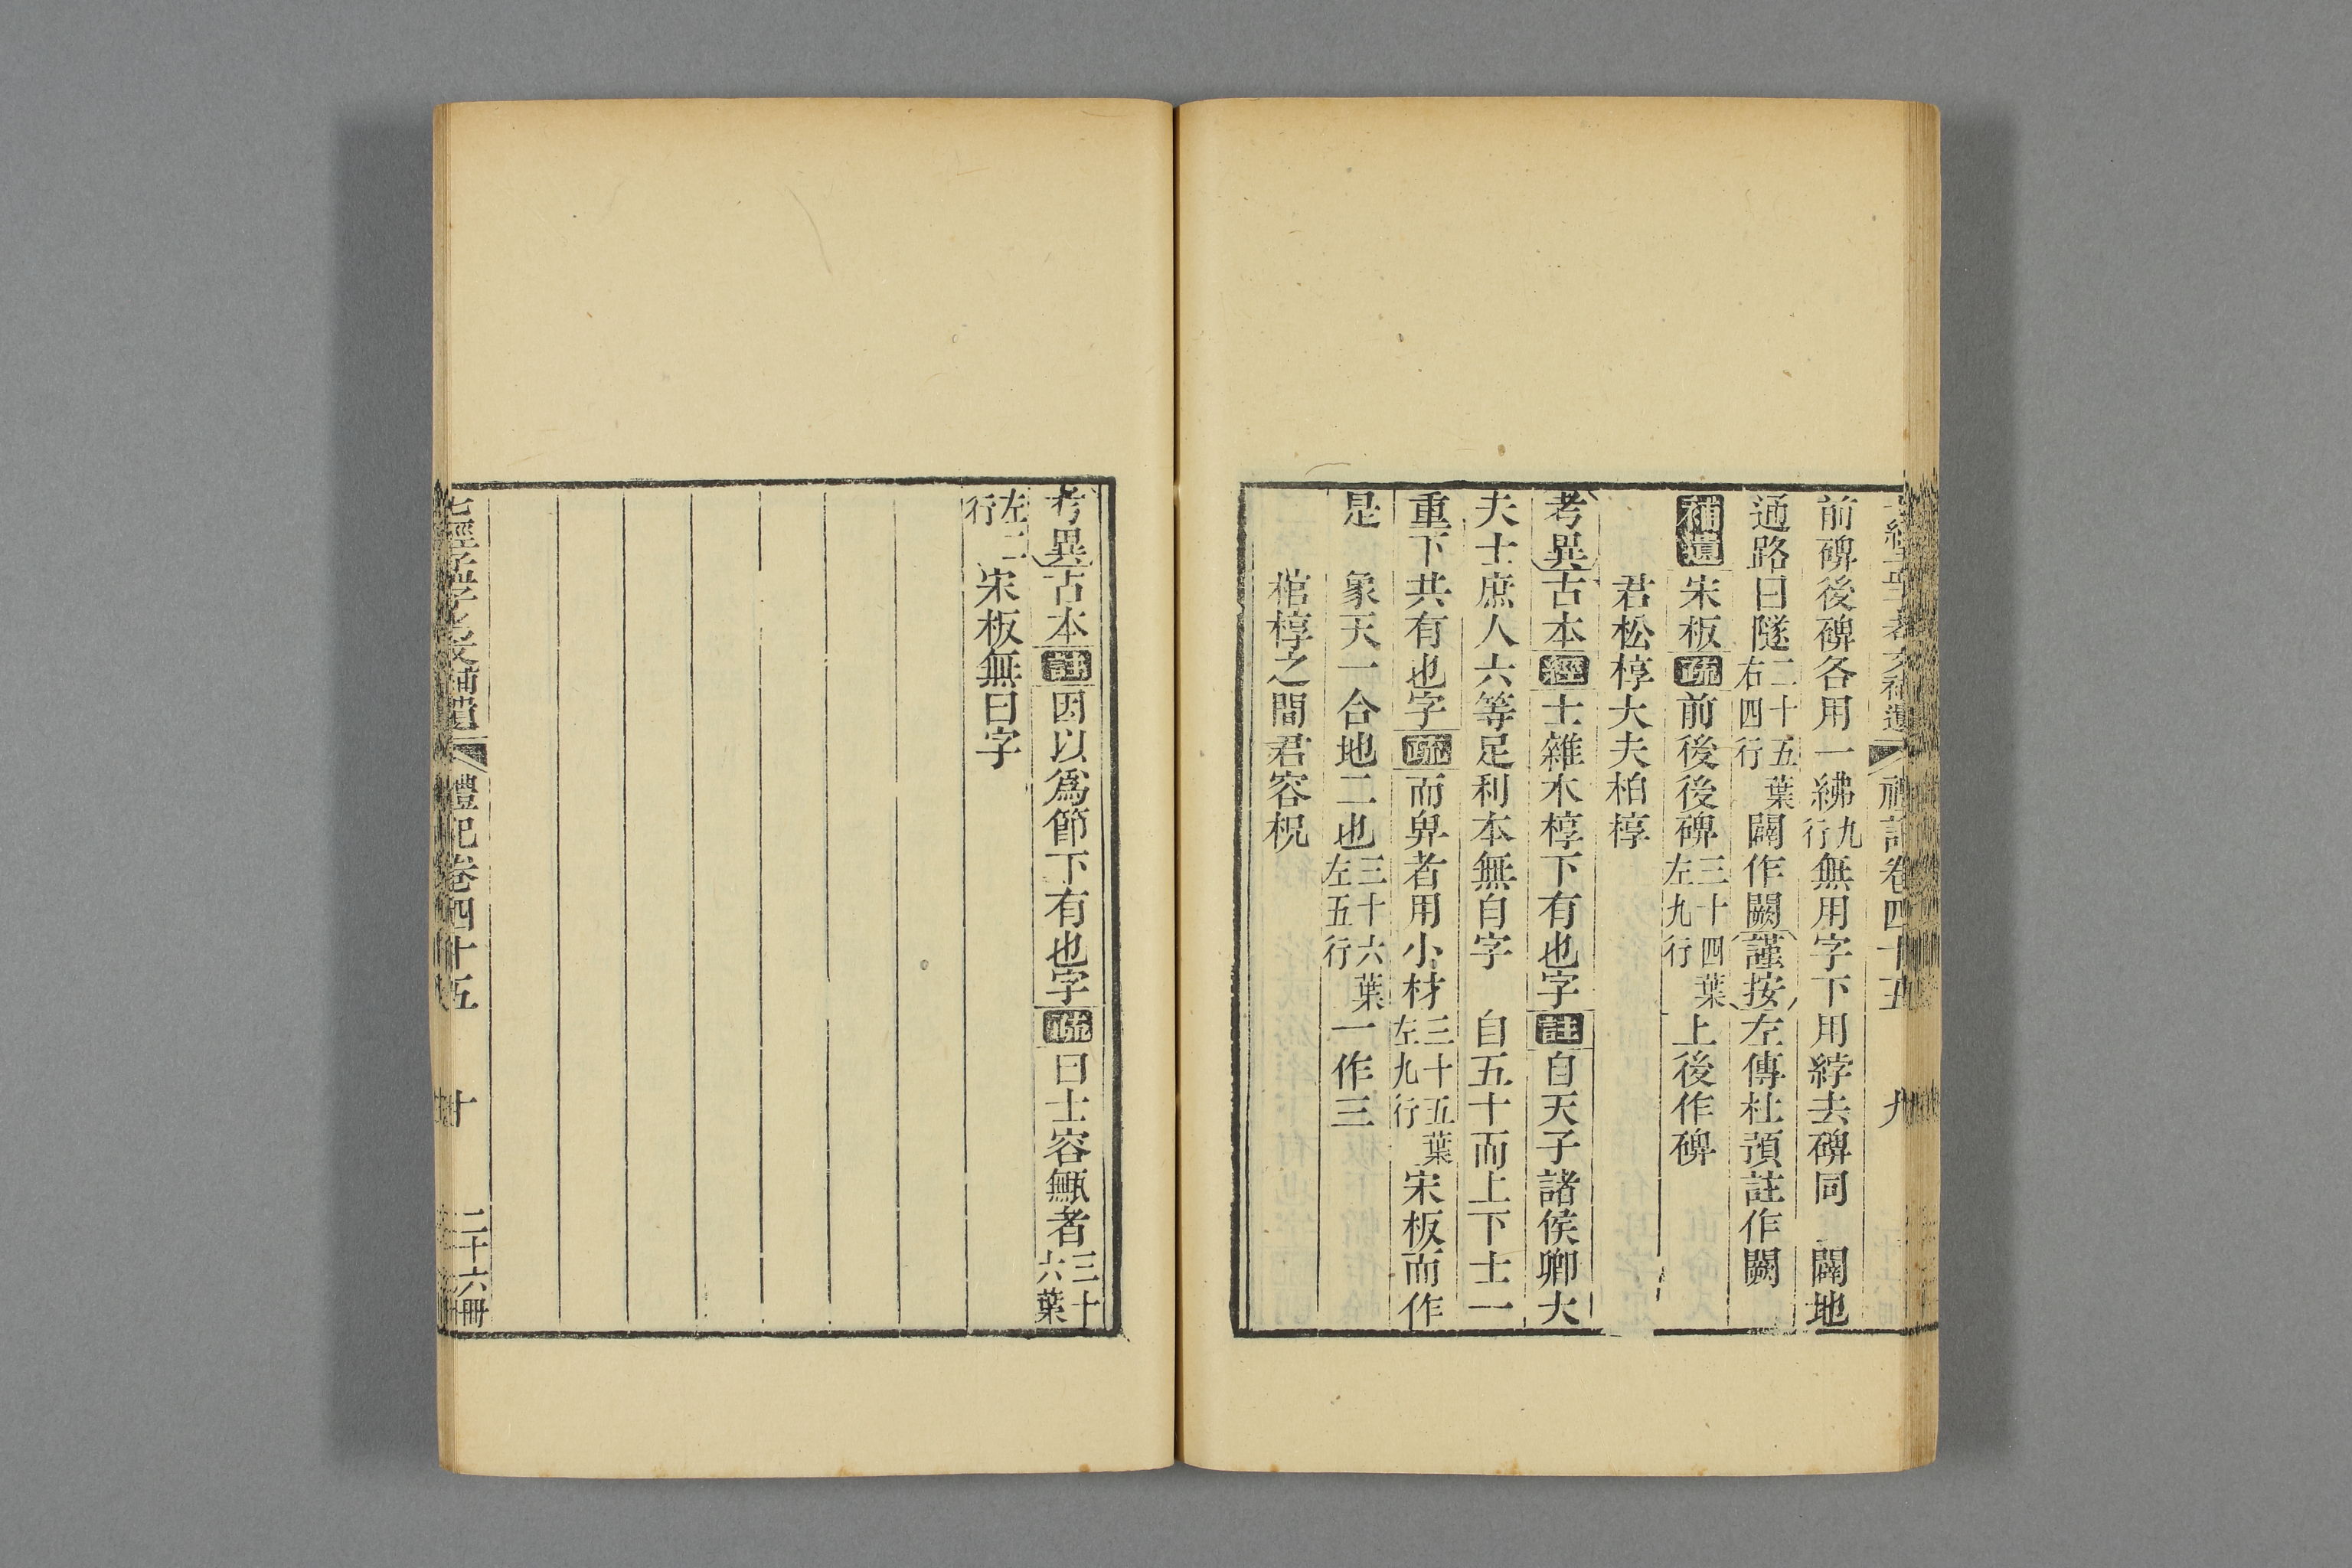 七經孟子考文補遺 禮記卷四十五 九
前碑後碑各用一紼九行無用字下用綍去碑同　闢地
通路曰隧二十五葉右四行闢作闕謹按左傳杜預註作闕
補遺宋板疏前後後碑三十四葉左九行上後作碑
君松椁大夫柏椁
考異古本經士雜木椁下有也字註自天子諸侯卿大
夫士庶人六等足利本無自字　自五十而上下士一
重下共有也字疏而卑者用小材三十五葉左九行宋板而作
是　象天一合地二也三十六葉左五行一作三
棺椁之間君容柷
考異古本註因以為節下有也字疏曰士容甒者三十六葉
左二行宋板無曰字
七經孟子考文補遺 禮記卷四十五 十 二十六冊